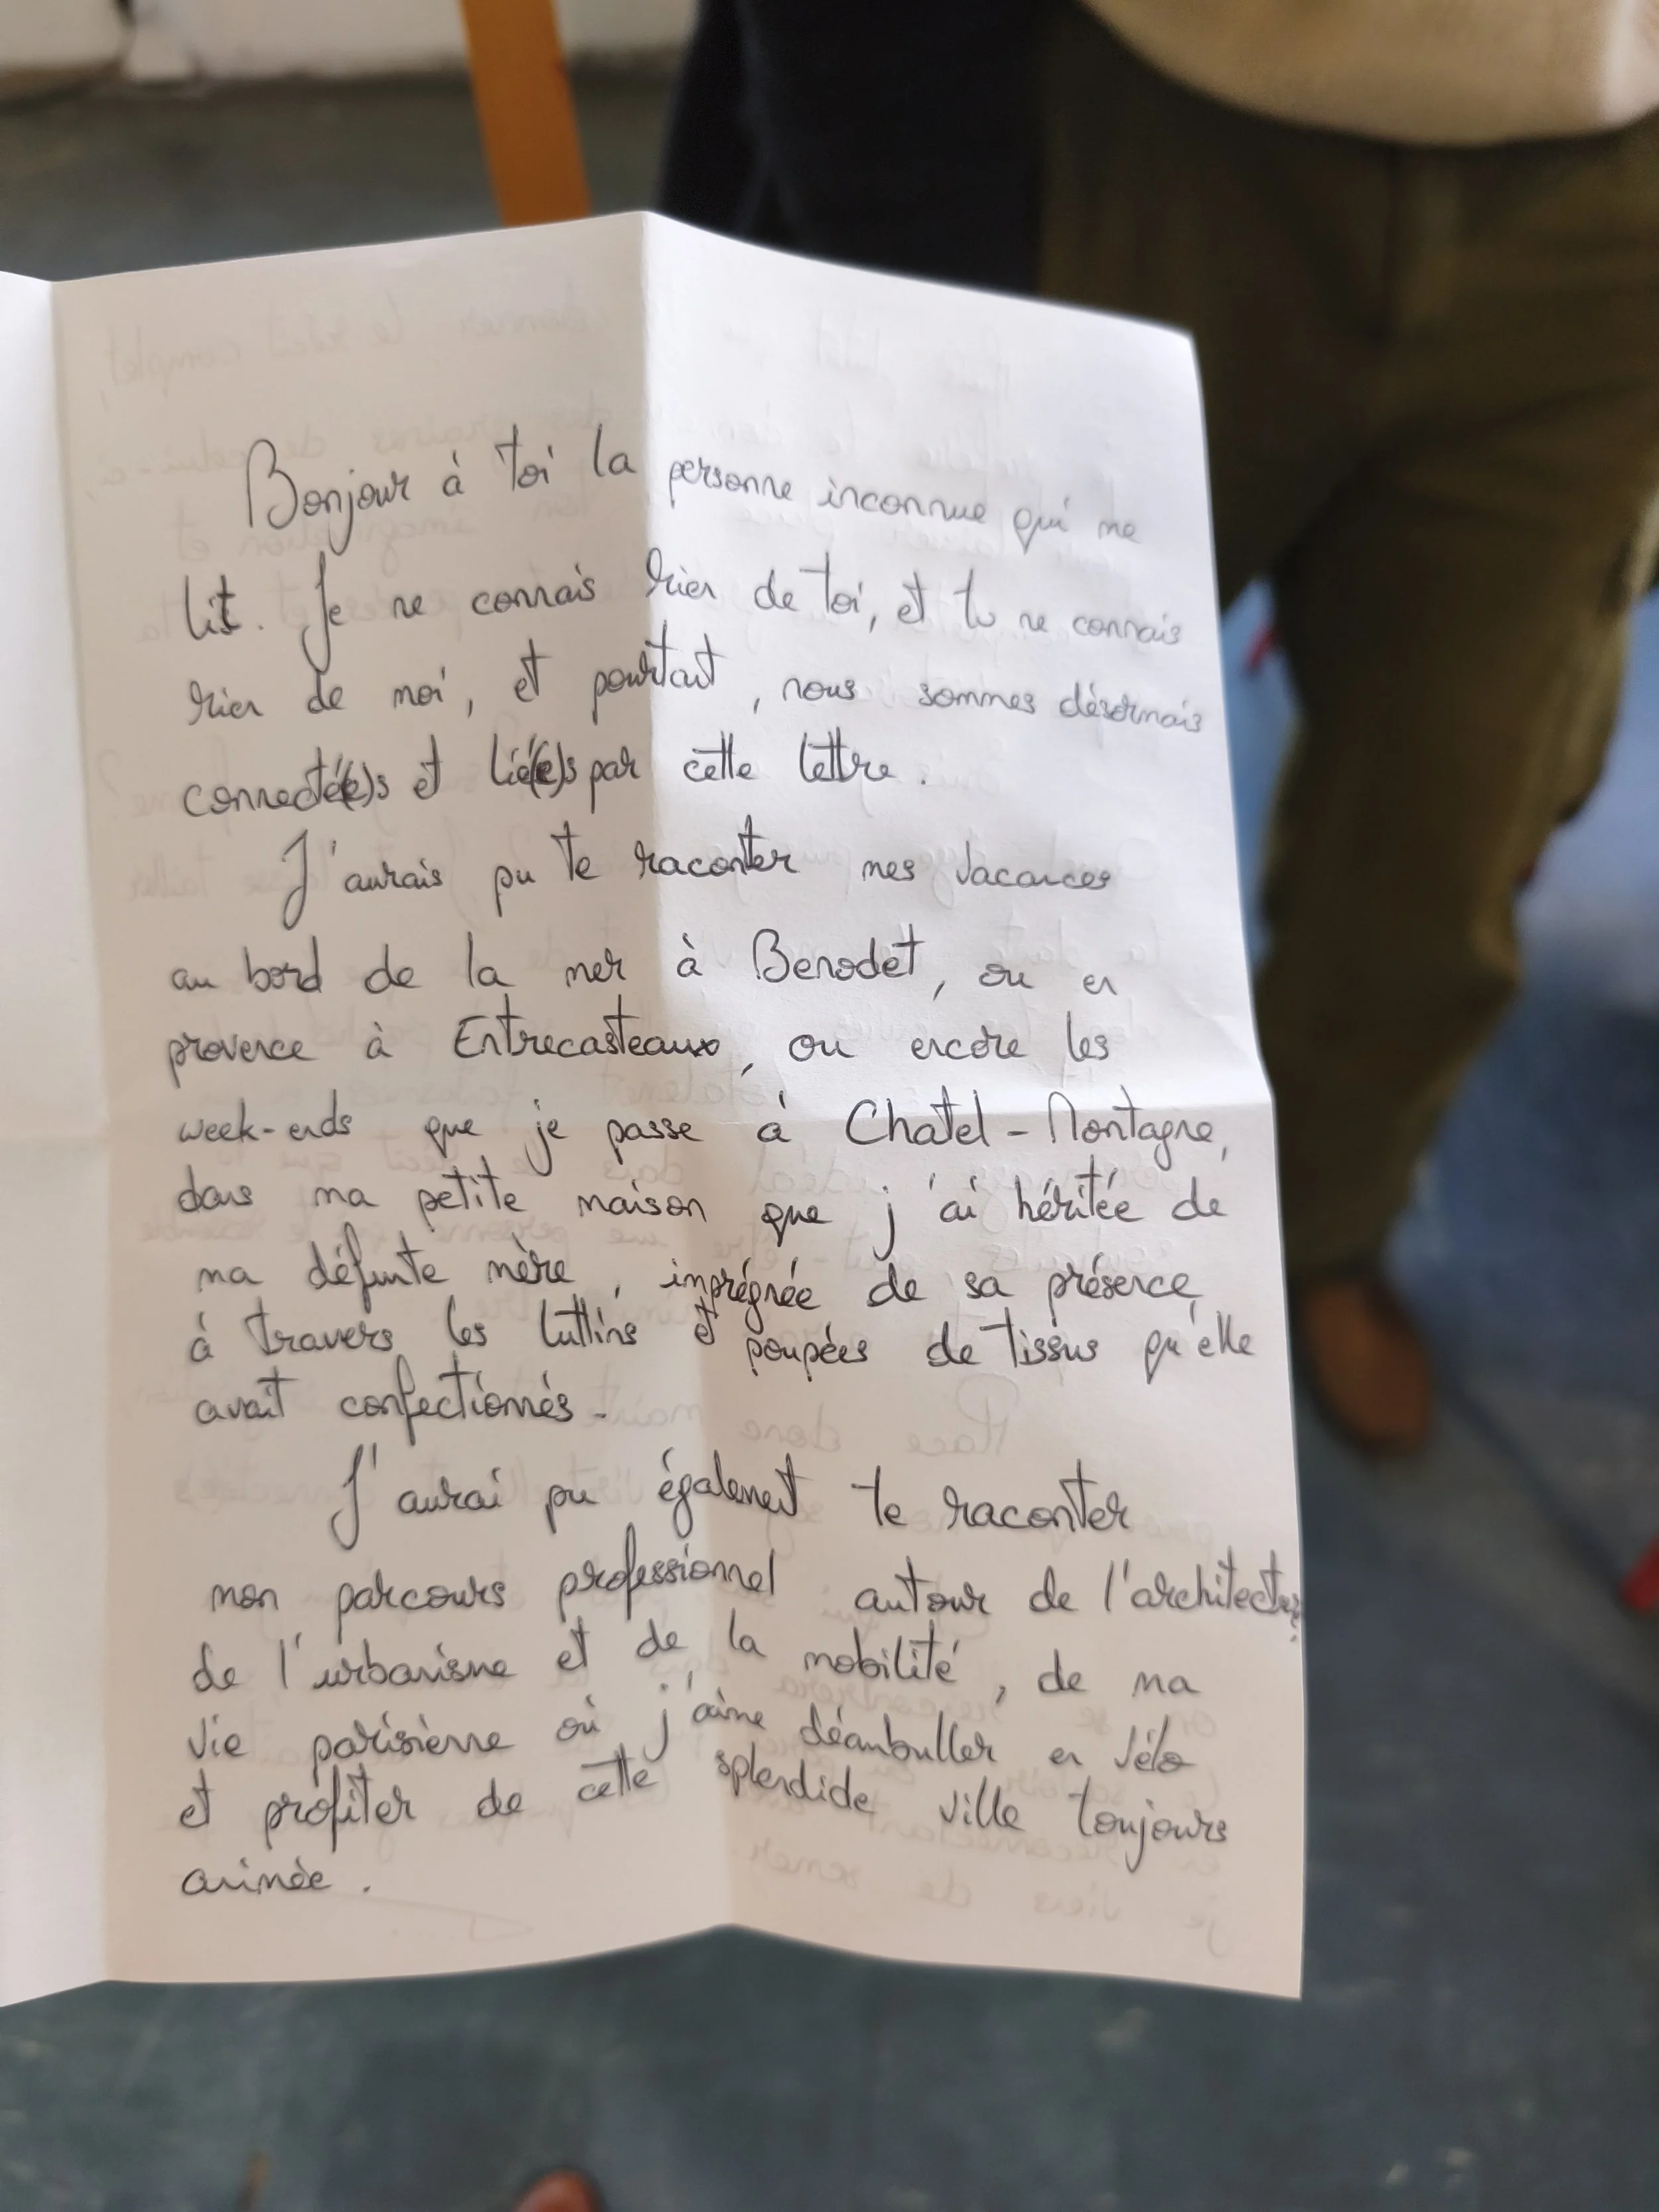 Bonjour à toi la personne inconnue qui me
lit. Je ne connais rien de toi, et tu ne connais
rien de moi, et pourtant, nous sommes désormais
connecté(e)s et lié(e)s par cette lettre.
J'aurais pu te raconter mes vacances
au bord de la mer à Benodet, ou en
provence à Entrecasteaux, ou encore les
week-ends que je passe à Chatel-Montagne,
dans ma petite maison que j'ai héritée de
ma défunte mère, imprégnée de sa présence,
à travers les luttins et poupées de tissus qu'elle
avait confectionnés.
J'aurai pu également te raconter
mon parcours professionnel autour de l'architecture,
de l'urbanisme et de la mobilité, de ma
vie parisienne où j'aime déambuller en vélo
et profiter de cette splendide ville toujours
animée.